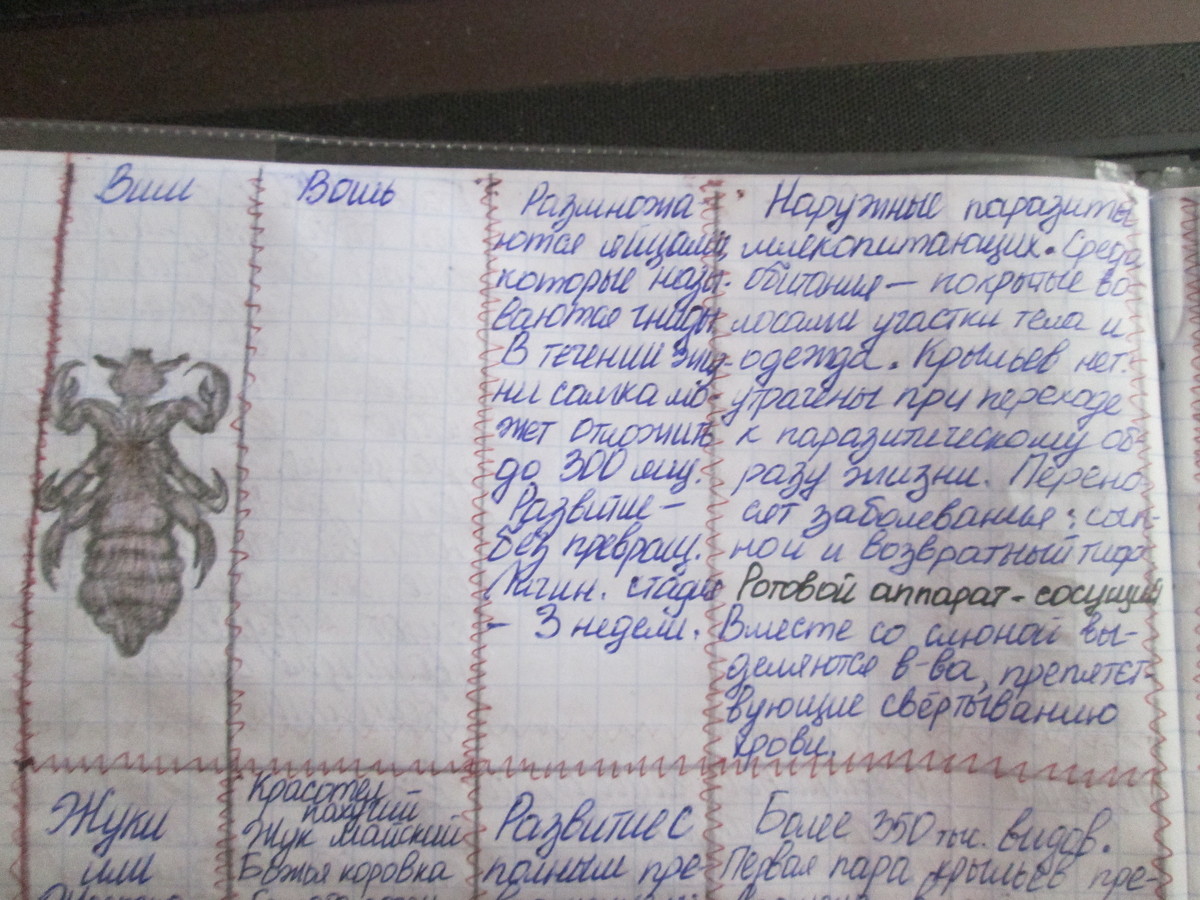 Вши
Вошь
Размножа
ются яйцами,
которые назы-
ваются гниды
В течении жиз-
ни самка мо-
жет отложить
до 300 яиц.
Развитие –
без превращ.
Личин. стадия
– 3 недели.
Наружные паразиты
млекопитающих. Среда
обитания – покрытые во-
лосами участки тела и
одежда. Крыльев нет.
утрачены при переходе
к паразитическому об-
разу жизни. Перено-
сят заболевания: сып-
ной и возвратный тиф
Ротовой аппарат - сосущий
Вместе со слюной вы-
деляются в-ва, препятст-
вующие свёртыванию
крови.
Жуки
или
Красотел
пахучий
Жук Майский
Божья коровка
Развитие с
полным пре-
Более 350 тыс. видов.
Первая пара крыльев пре-